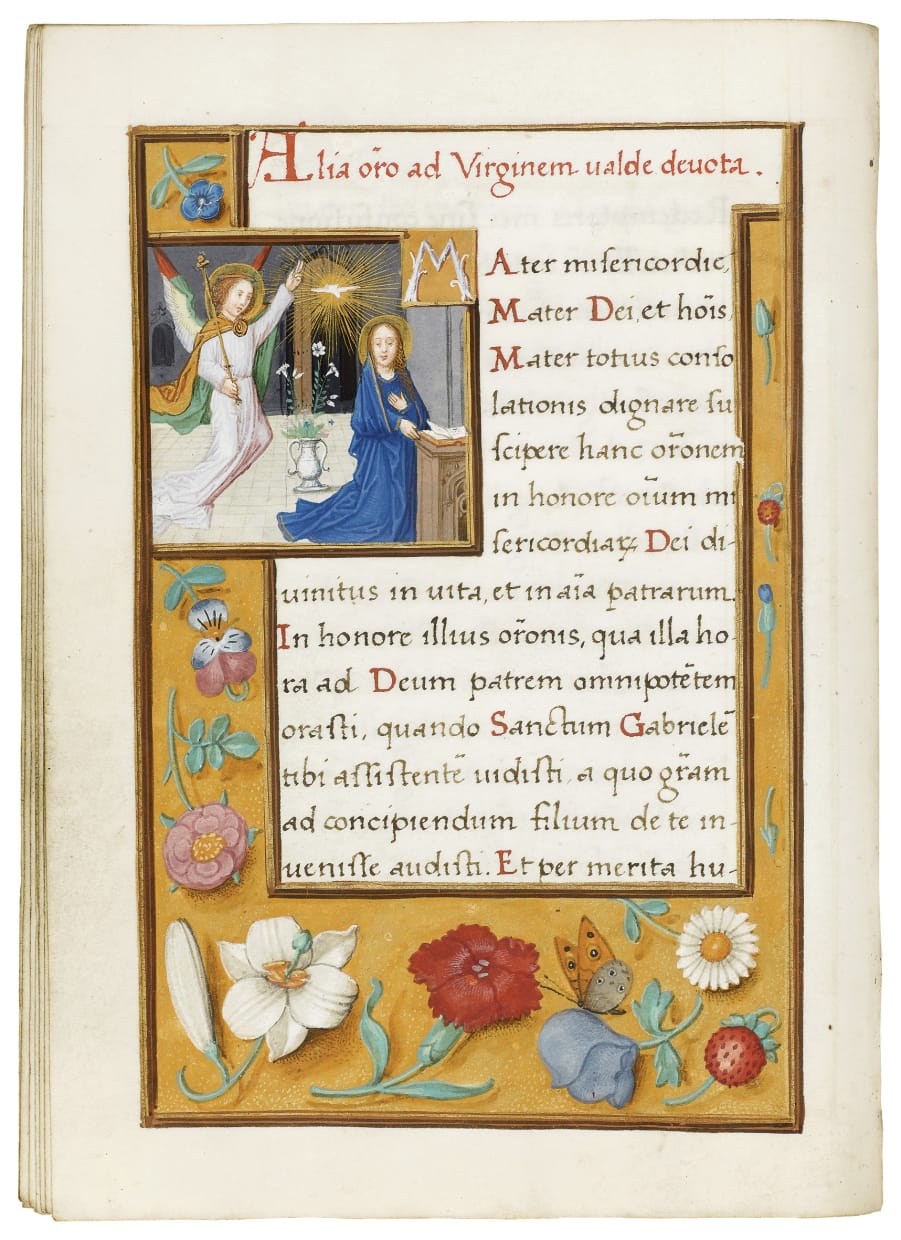 Alia oro ad Virginem ualde deuota.
MAter misericordie,
Mater Dei, et hois
Mater totius conso
lationis dignare su
scipere hanc oronem
in honore oium mi
sericordiaꝝ Dei di-
uinitus in uita, et in aia patrarum.
In honore illius oronis, qua illa ho-
ra ad Deum patrem omnipotētem
orasti, quando Sanctum Gabrielē
tibi assistentē uidisti, a quo gram
ad concipiendum filium de te in-
uenisse audisti. Et per merita hu-